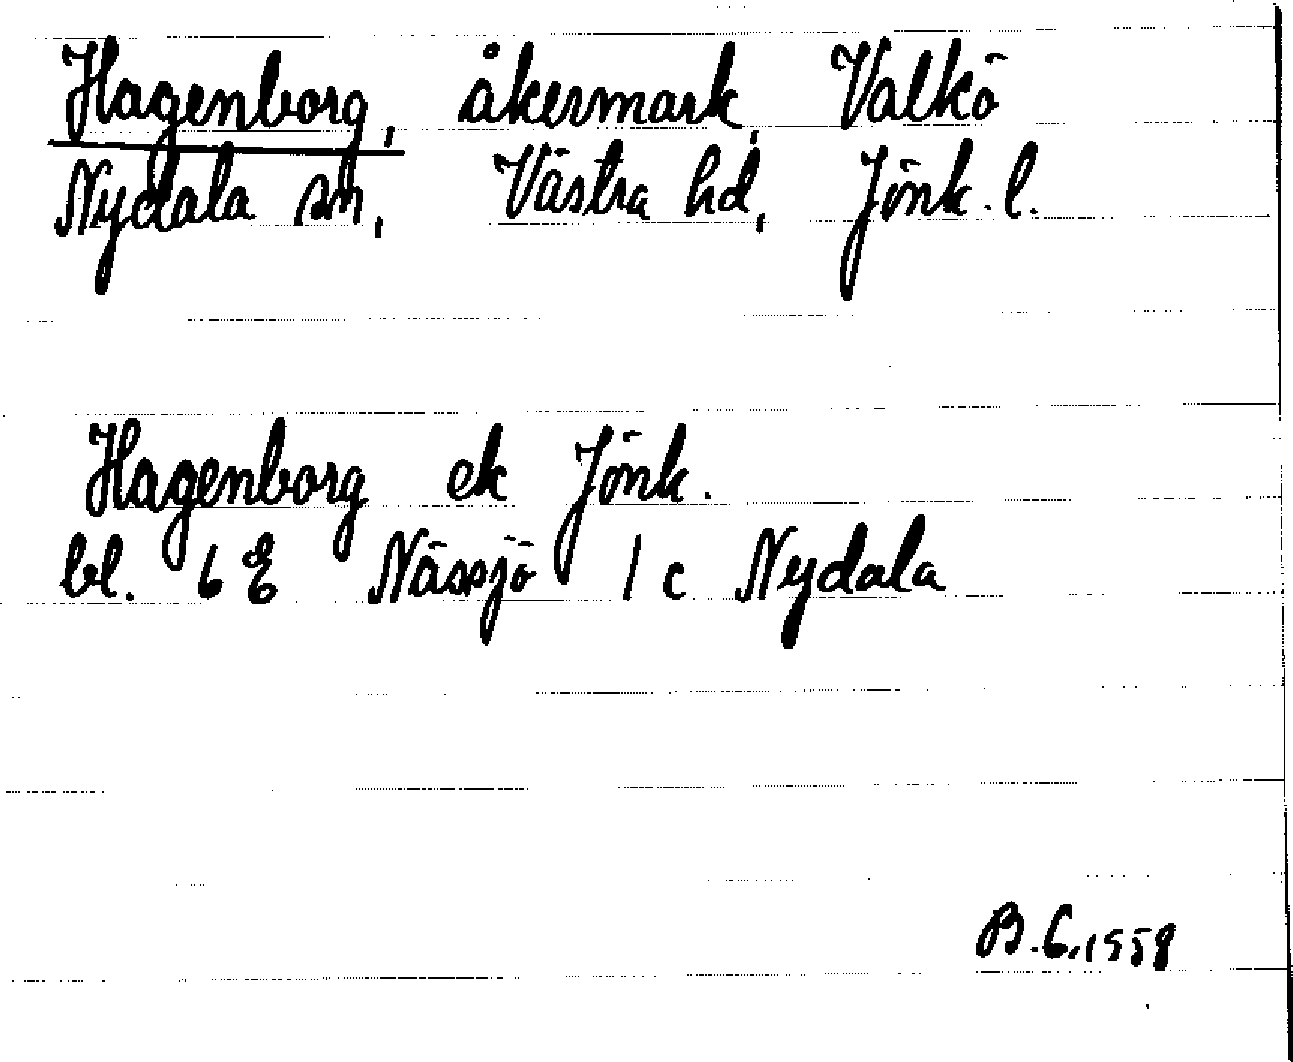 Hagenborg, åkermark, Valkö
Nydala sn, Västra hd, Jönk. l.
Hagenborg ek Jönk.
bl. 6 E Nässjö 1 c Nydala
B.G. 1958